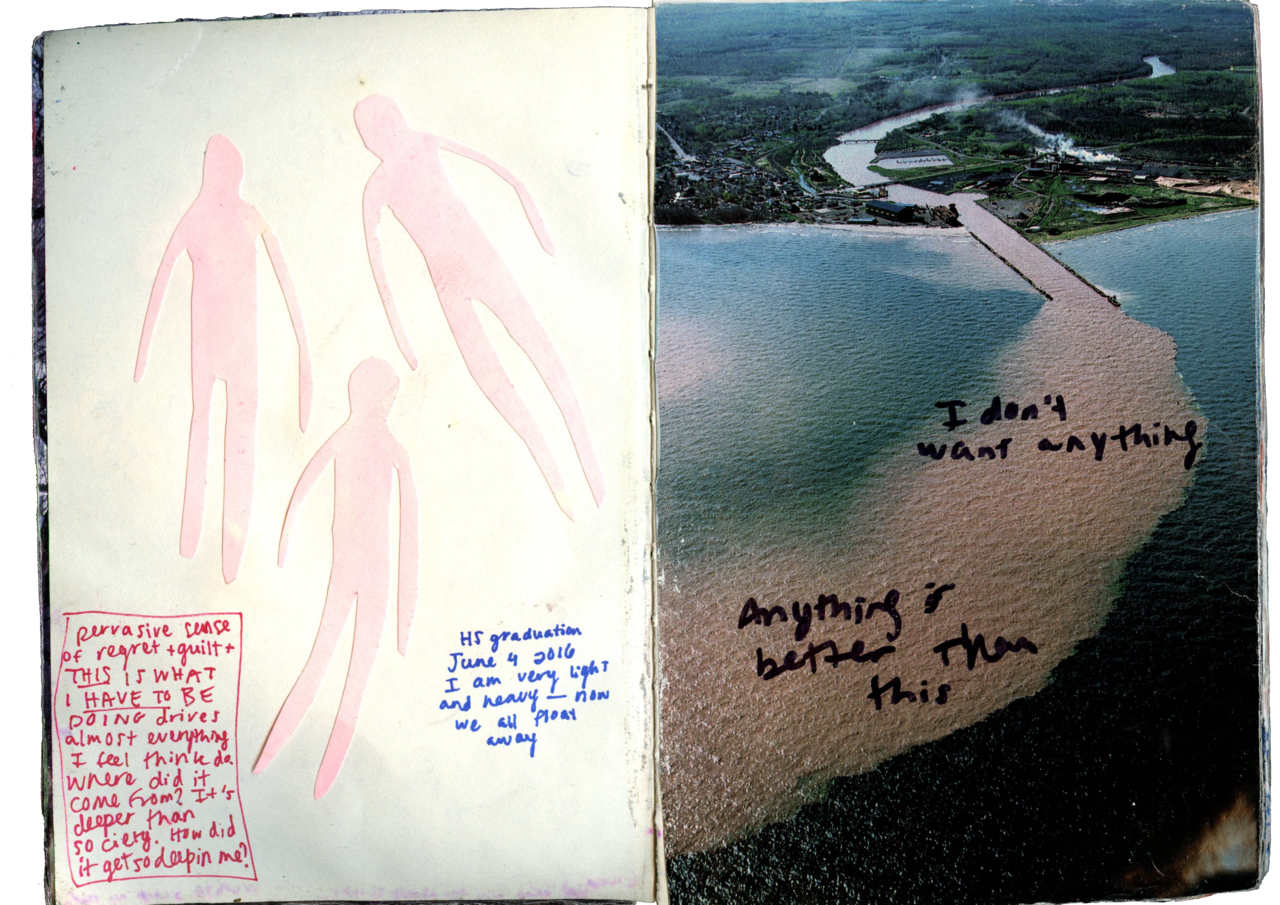 pervasive sense
of regret + guilt +
THIS IS WHAT
I HAVE TO BE
DOING drives
almost everything
I feel think do.
where did it
come from? It's
deeper than
society. How did
it get so deep in me?
HS graduation
June 4 2016
I am very light
and heavy — now
we all float
away
I don't
want anything
Anything is
better than
this